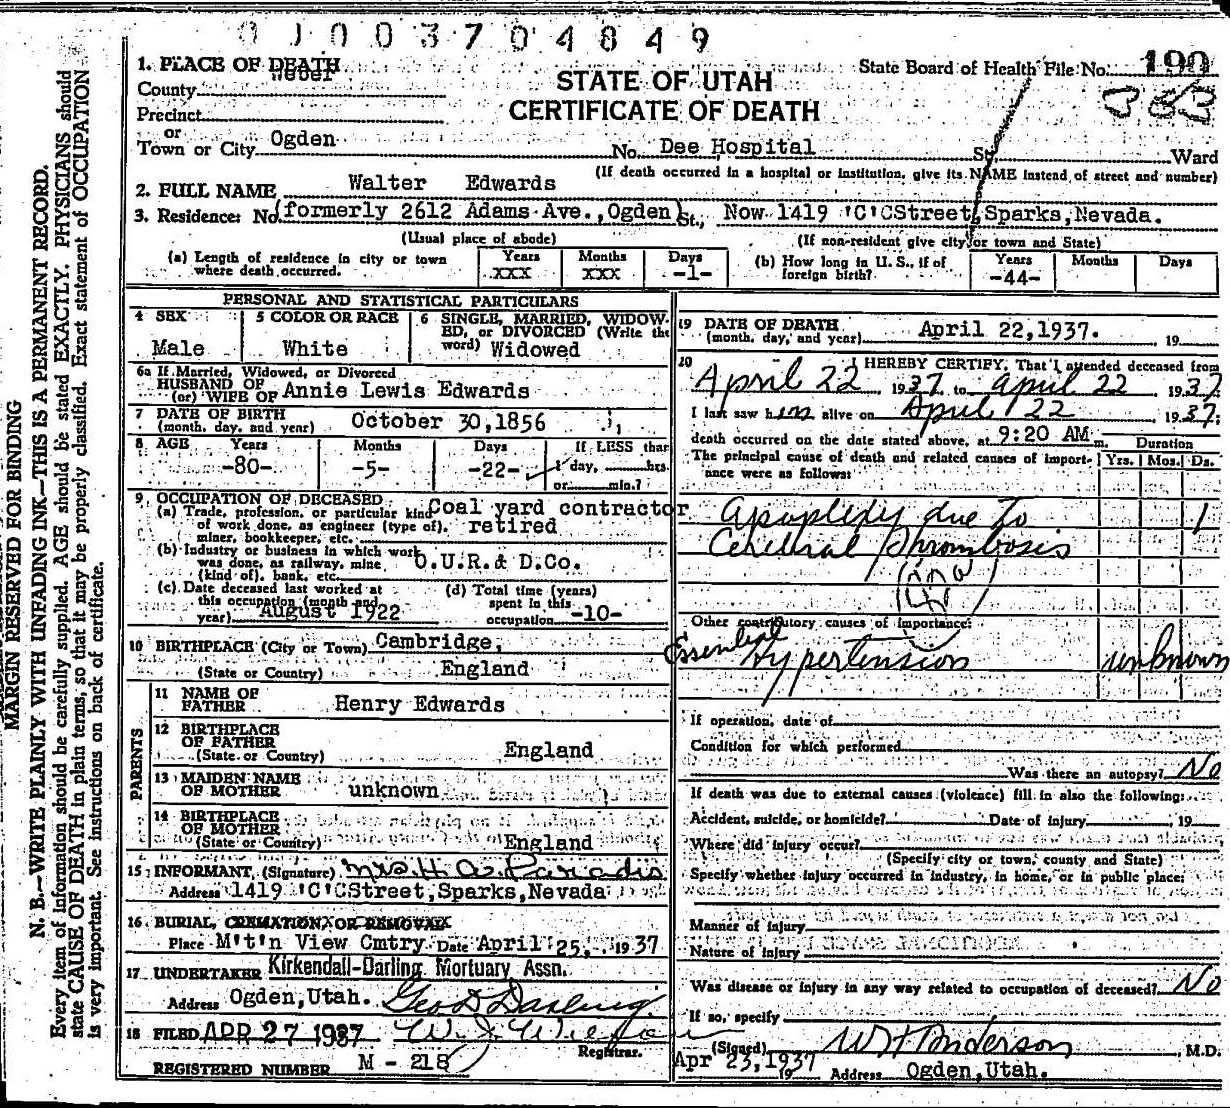 0 0 0 3 7 0 4 8 4 9
1. PLACE OF DEATH
State Board of Health File No. 190
County Weber
STATE OF UTAH
363
Precinct
CERTIFICATE OF DEATH
or
Town or City Ogden No. Dee Hospital St. Ward
(If death occurred in a hospital or institution, give its NAME instead of street and number)
2. FULL NAME Walter Edwards
3. Residence: No. (formerly 2612 Adams Ave.,Ogden) St., Now 1419 'C'CStreet,Sparks,Nevada.
(Usual place of abode) (If non-resident give city or town and State)
(a) Length of residence in city or town where death occurred. Years xxx Months xxx Days -1-
(b) How long in U. S., if of foreign birth? Years -44- Months Days
PERSONAL AND STATISTICAL PARTICULARS
4 SEX Male
5 COLOR OR RACE White
6 SINGLE, MARRIED, WIDOW-
ED, or DIVORCED (Write the
word) Widowed
6a If Married, Widowed, or Divorced
HUSBAND OF
(or) WIFE OF Annie Lewis Edwards
7 DATE OF BIRTH
(month, day, and year) October 30,1856
8 AGE Years -80- Months -5- Days -22- If LESS than
1 day, hrs.
or min.?
9 OCCUPATION OF DECEASED
(a) Trade, profession, or particular kind Coal yard contractor
of work done, as engineer (type of), retired
miner, bookkeeper, etc.
(b) Industry or business in which work O.U.R.& D.Co.
was done, as railway, mine
(kind of), bank, etc.
(c) Date deceased last worked at
this occupation (month and
year) August 1922
(d) Total time (years)
spent in this
occupation -10-
10 BIRTHPLACE (City or Town) Cambridge,
(State or Country) England
PARENTS
11 NAME OF
FATHER Henry Edwards
12 BIRTHPLACE
OF FATHER
(State or Country) England
13 MAIDEN NAME
OF MOTHER unknown
14 BIRTHPLACE
OF MOTHER
(State or Country) England
15 INFORMANT, (Signature) Mrs. H. A. Paradis
Address 1419 'C'CStreet,Sparks,Nevada
16 BURIAL, CREMATION, OR REMOVAL
Place M't'n View Cmtry. Date April 25, 1937
17 UNDERTAKER Kirkendall-Darling Mortuary Assn.
Address Ogden,Utah. Geo D Darling
18 FILED APR 27 1937
Registrar.
REGISTERED NUMBER M - 218
19 DATE OF DEATH
(month, day, and year) April 22,1937. 19
20 I HEREBY CERTIFY, That I attended deceased from
April 22 1937 to April 22 1937
I last saw him alive on April 22 1937.
death occurred on the date stated above, at 9:20 AM m.
Duration
The principal cause of death and related causes of import-
ance were as follows:
Yrs. Mos. Ds.
Apoplexy due to 1
Cerebral Thrombosis
Other contributory causes of importance:
Essential
Hypertension unknown
If operation, date of
Condition for which performed
Was there an autopsy? No
If death was due to external causes (violence) fill in also the following:
Accident, suicide, or homicide? Date of injury , 19
Where did injury occur?
(Specify city or town, county and State)
Specify whether injury occurred in industry, in home, or in public place:
Manner of injury
Nature of injury
Was disease or injury in any way related to occupation of deceased? No
If so, specify
(Signed) W H Anderson , M.D.
Apr 23,1937 19 Address Ogden,Utah.
MARGIN RESERVED FOR BINDING
N. B.—WRITE PLAINLY WITH UNFADING INK—THIS IS A PERMANENT RECORD.
Every item of information should be carefully supplied. AGE should be stated EXACTLY. PHYSICIANS should
state CAUSE OF DEATH in plain terms, so that it may be properly classified. Exact statement of OCCUPATION
is very important. See instructions on back of certificate.